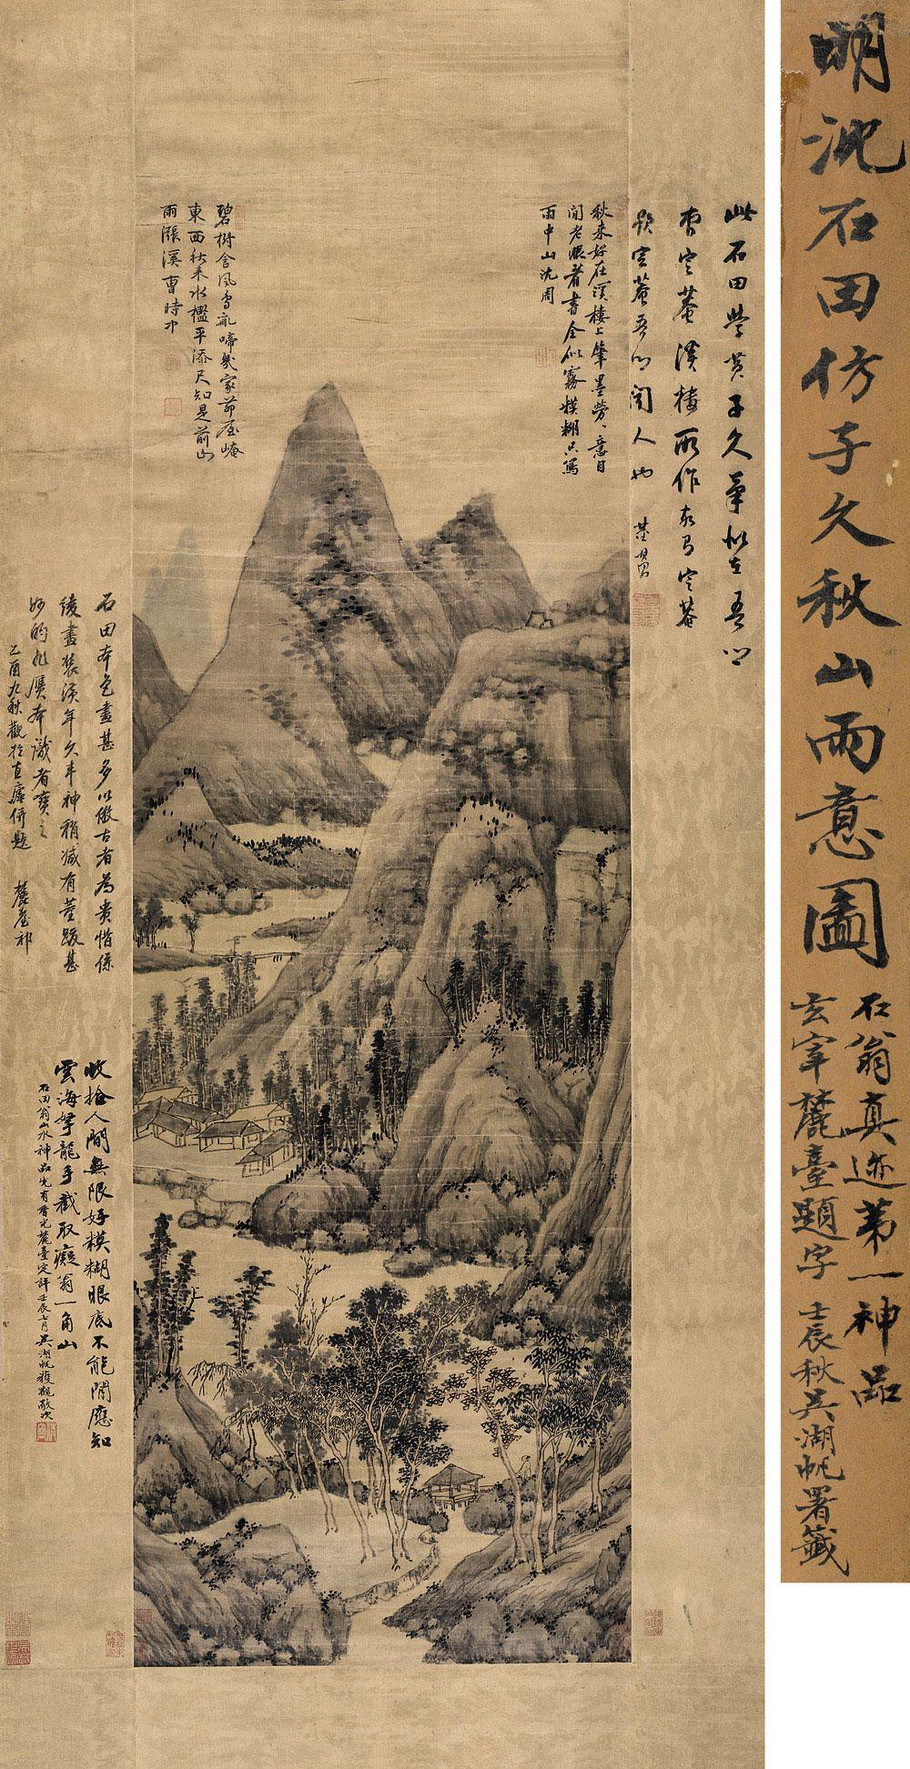 明沈石田仿子久秋山雨意圖
石翁真迹第一神品
玄宰麓臺題字 壬辰秋吳湖帆署籤
此石田學黃子久筆似在吾郡
曹定菴溪樓所作故有定菴
跋定菴吾郡聞人也 董其昌
秋來好在溪樓上筆墨勞勞意自
閒老眼看書全似霧模糊只寫
雨中山沈周
碧樹含風鳥亂啼幾家茆屋崦
東西秋來水檻平添尺知是前山
雨漲溪曹時中
石田本色畫甚多以倣古者為貴惜係
綾畫裝潢年久丰神稍減有董跋甚
妙的非贋本識者寶之
乙酉九秋觀於直廬併題 麓臺祁
收拾人間無限好模糊眼底不能閒應知
雲海拏龍手截取癡翁一角山
石田翁山水神品先有香光麓臺定評壬辰七月吳湖帆獲觀敬次